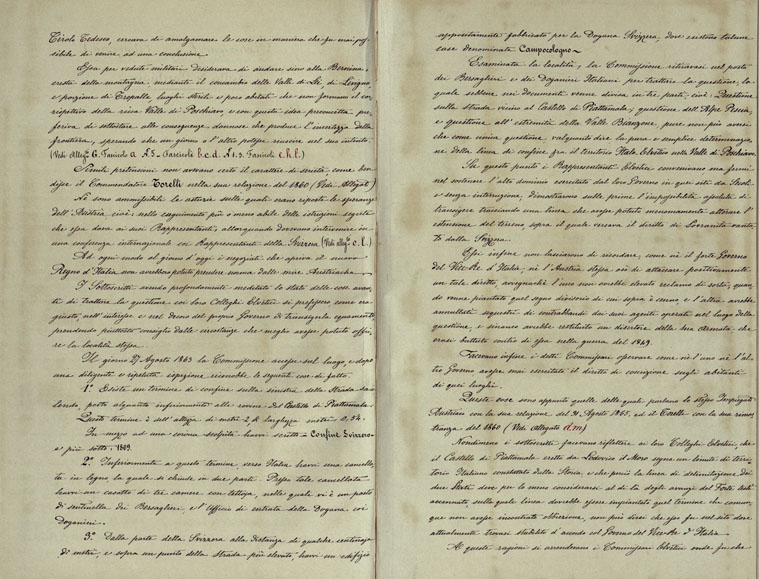 Tirolo Tedesco, cercava di amalgamare le cose in maniera che fu mai pos-
sibile di venire ad una conclusione.
Essa per vedute militari desiderava di andare sino alla Bernina
cresta della montagna, mediante il concambio della Valle di Lei, di Livigno
e porzione di Trepalle luoghi sterili e poco abitati che non formano il cor-
rispettivo della ricca Valle di Poschiavo, e con questa idea preconcetta, pre-
feriva di sottostare alle conseguenze dannose che produce l'incertezza della
frontiera, sperando che un giorno o l'altro potesse riuscire nel suo intento.
(Vedi Alleg.° G. Fascicolo a N. 5 - Fascicoli b. c. d. N. 1. 2. Fascicoli e. h. l.)
Simili pretensioni non avevano certo il carattere di serietà, come ben
disse il Commendatore Torelli nella sua relazione del 1860 (Vedi Allegato )
Nè sono ammissibili le astuzie sulle quali erano riposte le speranze
dell'Austria cioè: nello eseguimento più o meno abile delle istruzioni segrete
che essa dava ai suoi Rappresentanti, allorquando dovevano intervenire in
una conferenza internazionale coi Rappresentanti della Svizzera (Vedi alleg.° c. l.)
Ad ogni modo al giorno d'oggi i negoziati che apriva il nuovo
Regno d'Italia non avrebbero potuto prendere norma dalle mire Austriache.
I Sottoscritti avendo profondamente meditato lo stato delle cose avan-
ti di trattare la questione coi loro Colleghi Elvetici si prefissero come era
giusto, nell'interesse e nel decoro del proprio Governo di transigerla equamente
prendendo piuttosto consiglio dalle circostanze che meglio avesse potuto offri-
re la località stessa.
Il giorno 27 Agosto 1863 la Commissione accesse sul luogo, e dopo
una diligente e ripetuta ispezione riconobbe lo seguente cose di fatto.
1.° Esiste un termine di confine sulla sinistra della Strada sa-
lendo, posto alquanto inferiormente alle rovine del Castello di Piattamala.
Questo termine è dell'altezza di metri 2, e larghezza metri 0,54.
In mezzo ad una corona scolpita havvi scritto - Confine Svizzero -
e più sotto - 1809.
2.° Inferiormente a questo termine verso Italia havvi una cancella-
ta in legno la quale si chiude in due parti. Presso tale cancellata
havvi un casotto di tre camere con tettoja, nella quale vi è un posto
di sentinella dei Bersaglieri, e l'Ufficio di entrata della Dogana coi
Doganieri.
3.° Dalla parte della Svizzera alla distanza di qualche centinaja
di metri, e sopra un punto della Strada più elevato, havvi un edifizio
appositamente fabbricato per la Dogana Svizzera, dove esistono talune
case denominate Campocologno -
Esaminata la località, la Commissione ritiravasi nel posto
dei Bersaglieri e dei Doganieri Italiani per trattare la questione, la
quale sebbene nei documenti venne divisa in tre parti cioè: Questione
sulla strada vicino al Castello di Piattamala, questione dell'Alpe Pescia,
e questione all'estremità della Valle Bianzone, pure non può aversi
che come unica questione, valguondire la pura e semplice determinazio-
ne della linea di confine fra il territorio Italo Elvetico nella Valle di Poschiavo.
Su questo punto i Rappresentanti Elvetici convenivano ma fermi
nel sostenere l'alto dominio esercitato dal loro Governo in quei siti da Secoli
e senza interruzione, dimostravano sulle prime l'impossibilità assoluta di
transigere tracciando una linea che avesse potuto menomamente alterare l'
estensione del terreno, sopra il quale versava il diritto di Sovranità vanta-
to dalla Svizzera.
Essi infine non lasciarono di ricordare, come nè il forte Governo
del Vice-Re d'Italia, nè l'Austria stessa osò di attaccare positivamente
un tale diritto, avvegnachè l'uno non ebbe elevato reclamo di sorta, quan-
do venne piantato quel segno divisorio di cui sopra è cenno, e l'altra avrebbe
annullati sequestri di contrabbandi dai suoi agenti operati nel luogo della
questione, e financo avrebbe restituito un disertore della sua armata che
erasi battuto contro di essa nella guerra del 1849.
Facevano infine i detti Commissari osservare come nè l'uno nè l'al-
tro Governo avesse mai esercitato il diritto di coscrizione sugli abitanti
di quei luoghi.
Queste cose sono appunto quelle delle quali parlano lo stesso Impiegato
Austriaco con la sua relazione del 31 Agosto 1865, ed il Torelli con la sua rimo-
stranza del 1860 (Vedi Allegato d. m)
Nondimeno i sottoscritti facevano riflettere ai loro Colleghi Elvetici, che
il Castello di Piattamala eretto da Lodovico il Moro segna un limite di terri-
torio Italiano constatato dalla Storia, e che perciò la linea di delimitazione dei
due Stati deve per lo meno considerarsi al di là dagli avanzi del Forte testè
accennato, sulla quale linea dovrebbe essere impiantato quel termine che comun-
que non avesse incontrato obbiezione, non può dirsi che esso fu nel sito dove
attualmente trovasi stabilito d'accordo col Governo del Vice-Re d'Italia.
A queste ragioni si arrendevano i Commissari Elvetici onde fu che